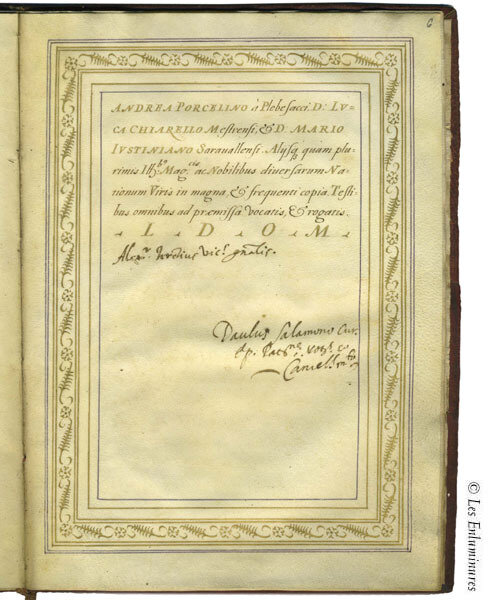 6
ANDREA PORCELINO à Plebesacci. D: LV-
CA CHIARELLO Mestrensi, & D. MARIO
IVSTINIANO Sarauallensi. Alysq; quam plu-
rimis Ill.ᵇᵘˢ Mag.ᶜⁱˢ ac Nobilibus diuersarum Na-
tionum Viris in magna & frequenti copia. Testi-
bus omnibus ad præmissa vocatis, & rogatis.
L D O M
vic.ˢ gnalis.
Paulus Salamono Cur.
© Les Enluminures